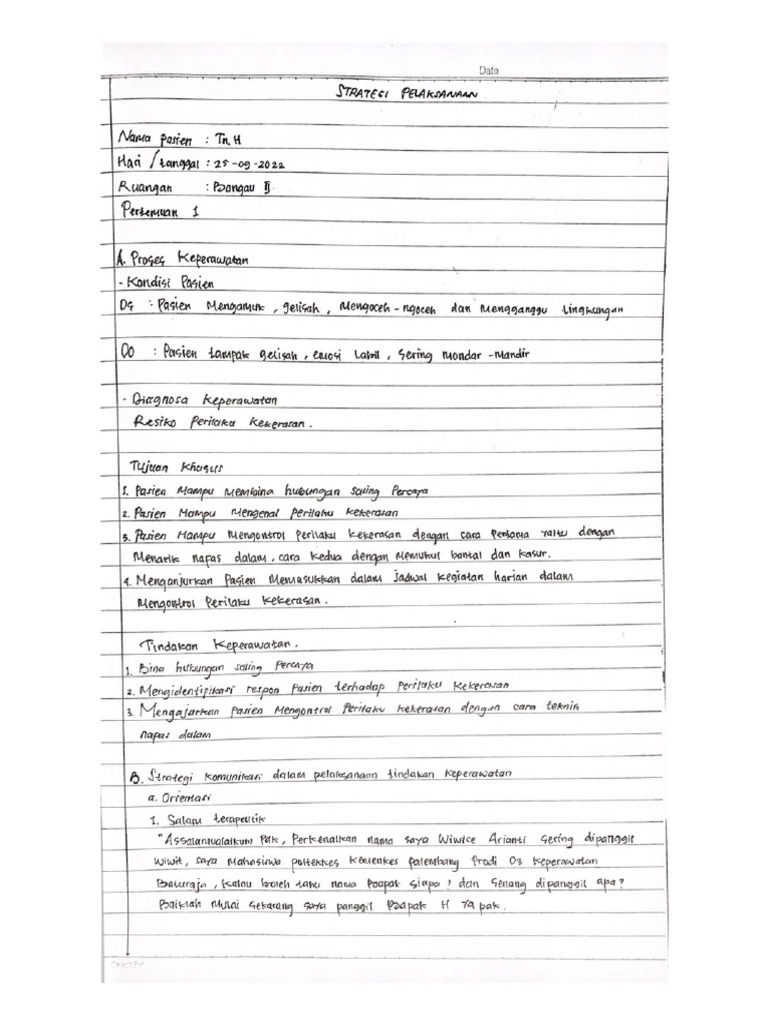 Date
STRATEGI PELAKSANAAN
Nama pasien : Tn. H
Hari / tanggal : 25-09-2022
Ruangan : Bangau II
Pertemuan 1
A. Proses Keperawatan
- Kondisi Pasien
DS : Pasien Mengamuk, gelisah, Mengoceh-ngoceh dan Mengganggu lingkungan
DO : Pasien tampak gelisah, emosi labil, sering mondar-mandir
- Diagnosa Keperawatan
Resiko Perilaku Kekerasan.
Tujuan Khusus
1. Pasien Mampu Membina hubungan saling Percaya
2. Pasien Mampu Mengenal Perilaku kekerasan
3. Pasien Mampu Mengontrol Perilaku kekerasan dengan cara Pertama yaitu dengan
Menarik napas dalam, cara kedua dengan Memukul bantal dan kasur.
4. Menganjurkan Pasien Memasukkan dalam jadwal kegiatan harian dalam
Mengontrol Perilaku kekerasan.
Tindakan Keperawatan.
1. Bina hubungan saling Percaya
2. Mengidentifikasi respon Pasien terhadap Perilaku Kekerasan
3. Mengajarkan Pasien Mengontrol Perilaku kekerasan dengan cara teknik
napas dalam
B. Strategi Komunikasi dalam pelaksanaan tindakan Keperawatan
a. Orientasi
1. Salam terapeutik
"Assalamualaikum Pak, Perkenalkan nama saya Wiwice Arianti Sering dipanggil
Wiwit, saya Mahasiswa poltekkes Kemenkes palembang Prodi D3 Keperawatan
Baturaja, Kalau boleh tahu nama Bapak siapa? dan Senang dipanggil apa?
Baiklah Mulai Sekarang saya panggil Bapak H Ya pak.